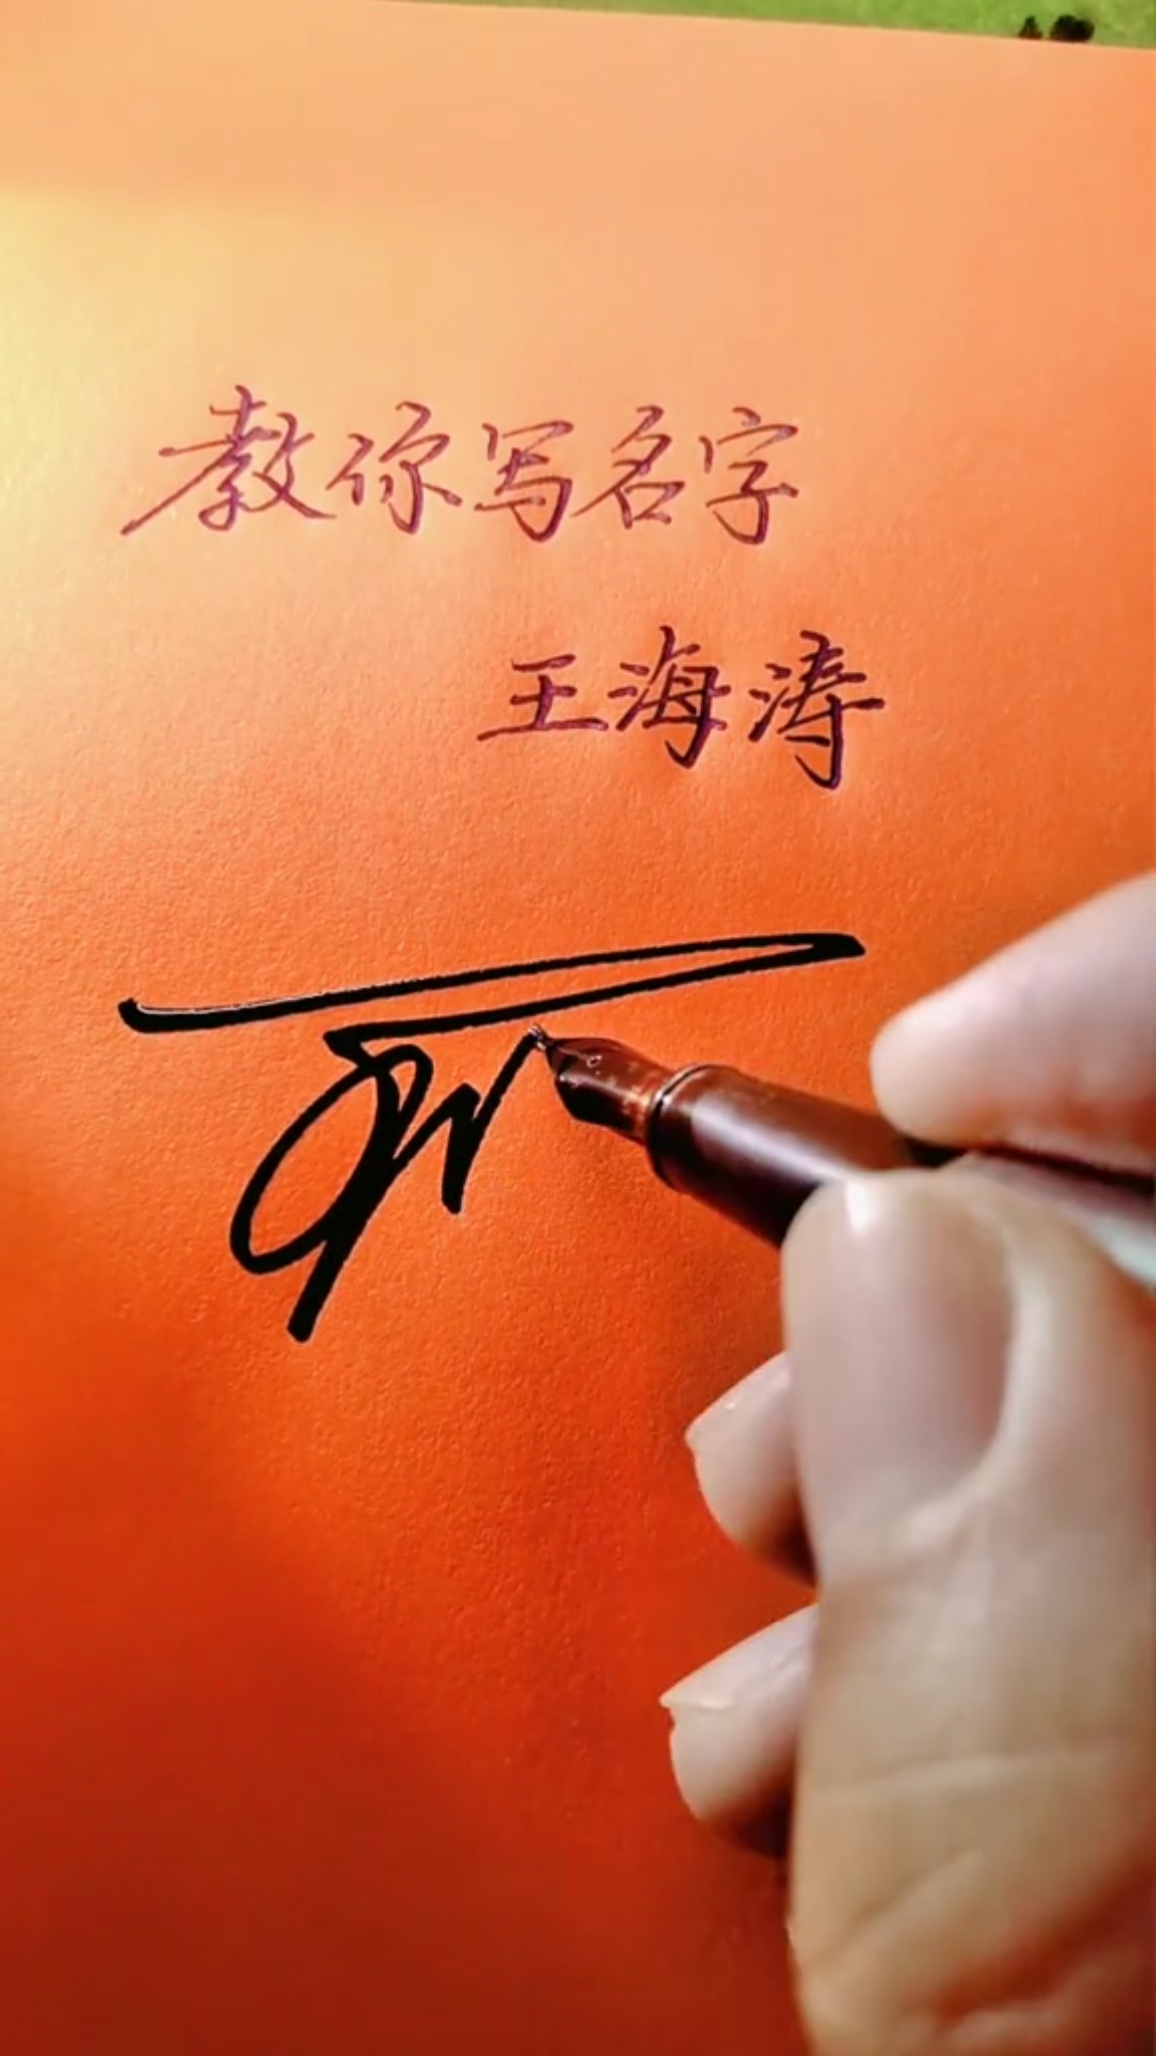 教你写名字
王海涛